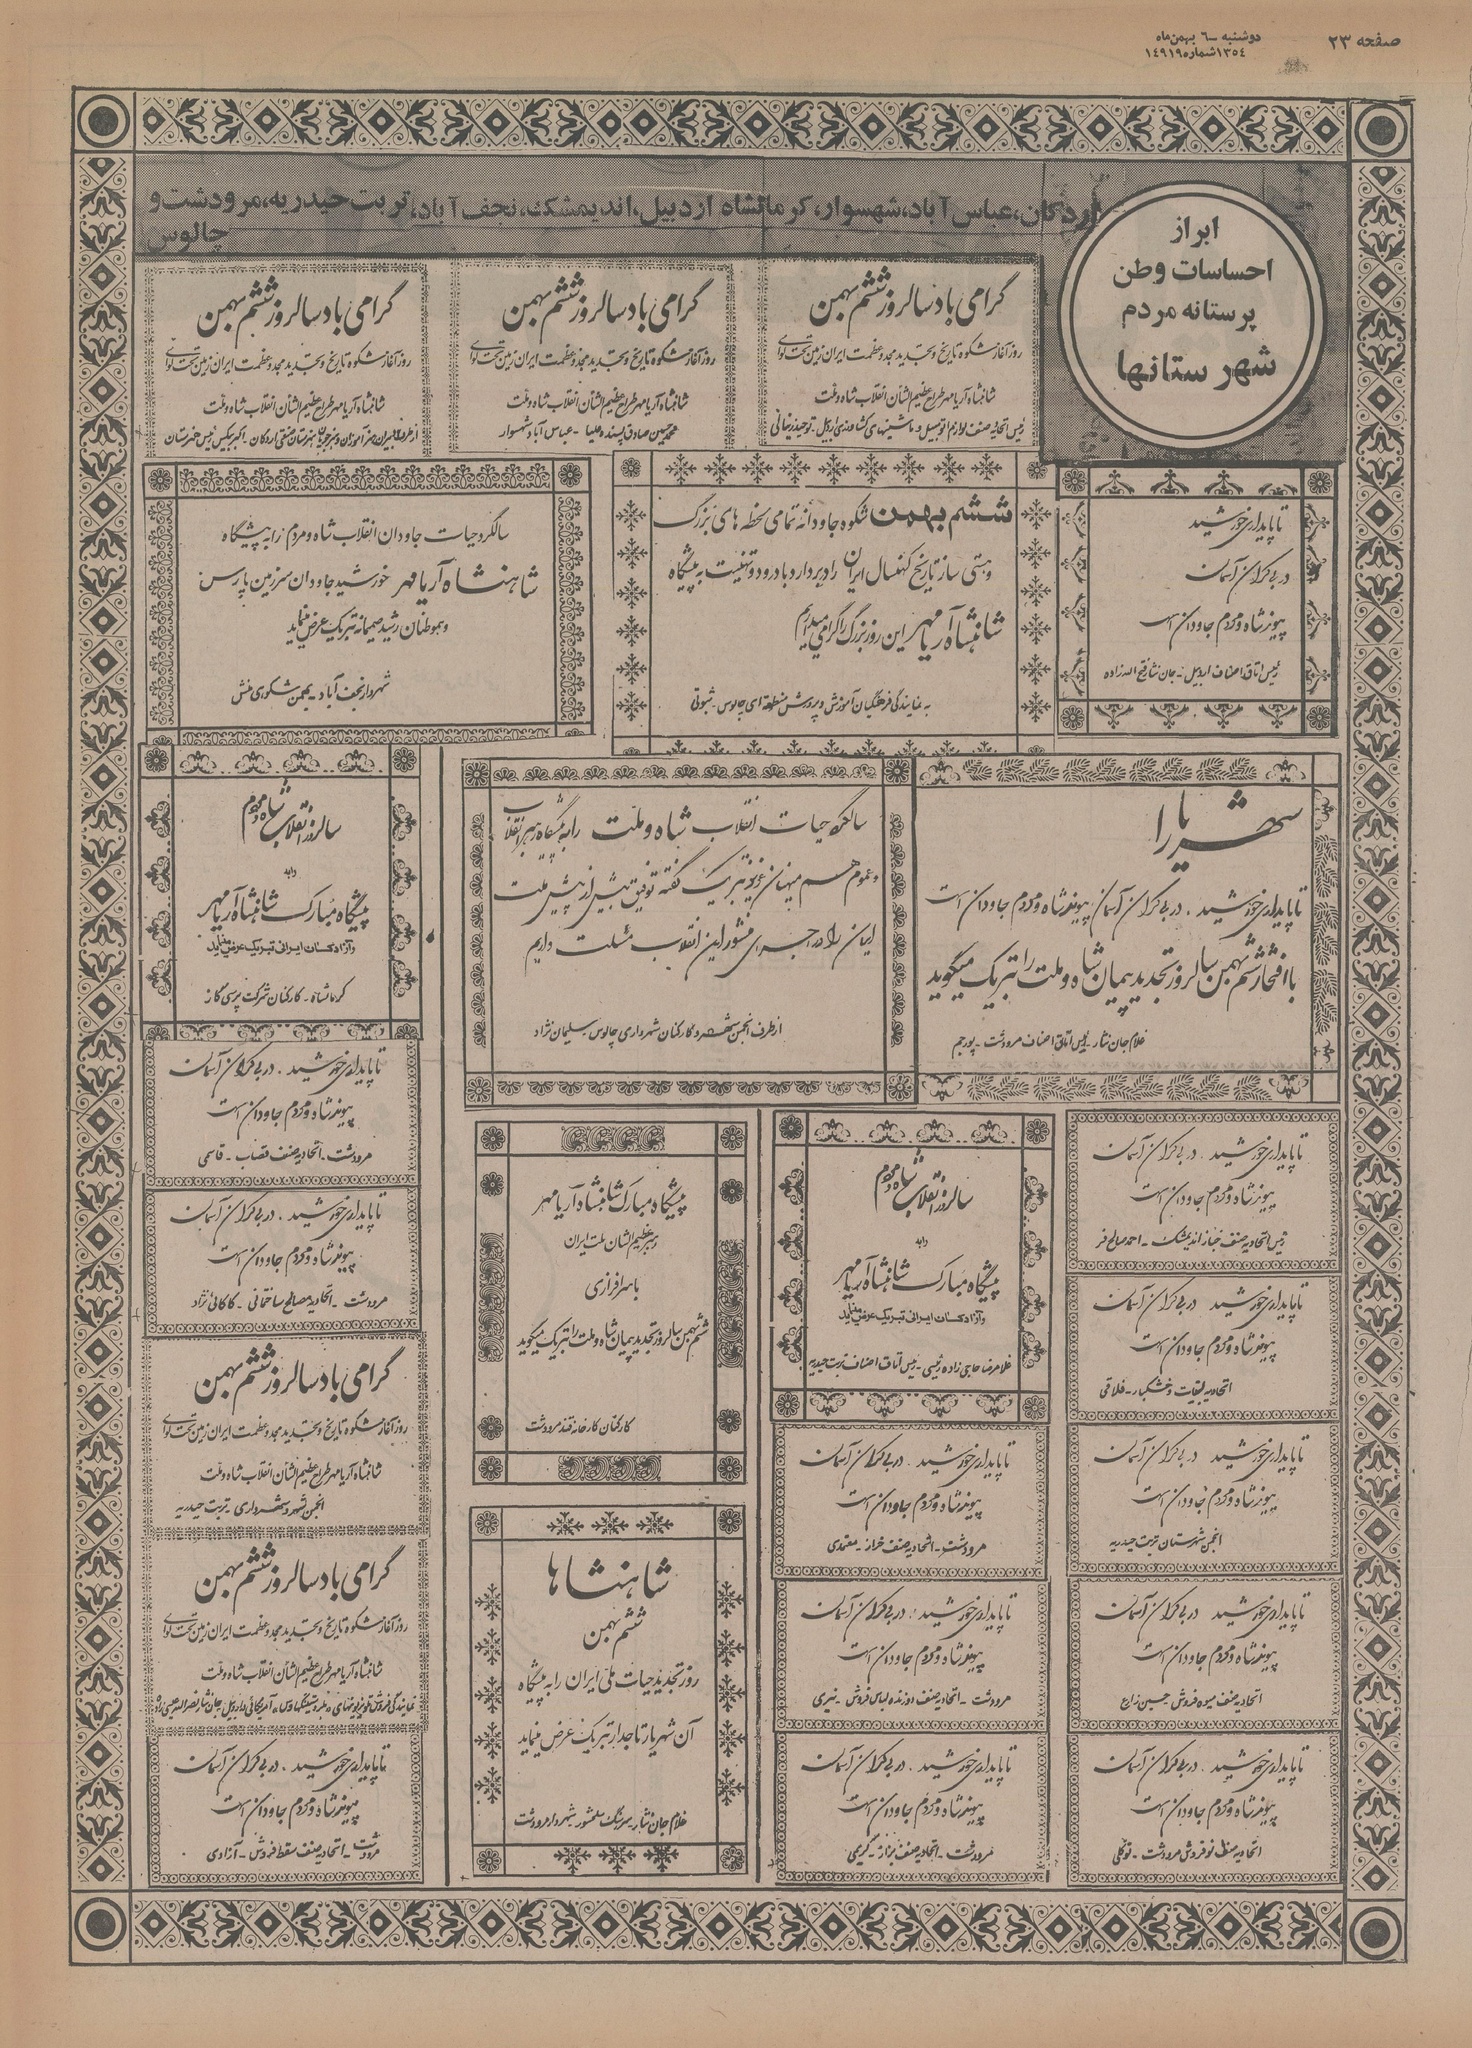 صفحه ۲۳
دوشنبه ـ ۶ بهمن ماه
۱۳۵۴ شماره ۱۴۹۱۹
ابراز
احساسات وطن
پرستانه مردم
شهرستانها
اردکان، عباس آباد، شهسوار، کرمانشاه اردبیل، اندیمشک، نجف آباد، تربت حیدریه، مرودشت و
چالوس
گرامی باد سالروز ششم بهمن
روز آغاز شکوه تاریخ و تجدید مجد و عظمت ایران زمین تحت لوای
شاهنشاه آریامهر طراح عظیم الشأن انقلاب شاه و ملت
رئیس اتحادیه صنف لوازم اتومبیل و ماشینهای کشاورزی اردبیل ـ توحید زنجانی
گرامی باد سالروز ششم بهمن
روز آغاز شکوه تاریخ و تجدید مجد و عظمت ایران زمین تحت لوای
شاهنشاه آریامهر طراح عظیم الشأن انقلاب شاه و ملت
محمد حسین صادق پسنده علیا ـ عباس آباد شهسوار
گرامی باد سالروز ششم بهمن
روز آغاز شکوه تاریخ و تجدید مجد و عظمت ایران زمین تحت لوای
شاهنشاه آریامهر طراح عظیم الشأن انقلاب شاه و ملت
تا پایداری خورشید
در بی کران آسمان
پیوند شاه و مردم جاودان است
رئیس اتاق اصناف اردبیل ـ جان نثار فتح الله زاده
ششم بهمن شکوه جاودانه تمامی لحظه های بزرگ
و هستی ساز تاریخ کهنسال ایران را دربردارد با درود و تهنیت به پیشگاه
شاهنشاه آریامهر این روز بزرگ را گرامی میداریم
به نمایندگی فرهنگیان آموزش و پرورش منطقه ای چالوس ـ ثبوتی
سالگرد حیات جاودان انقلاب شاه و مردم را به پیشگاه
شاهنشاه آریامهر خورشید جاودان سرزمین پارس
و هموطنان رشید صمیمانه تبریک عرض مینماید
شهردار نجف آباد ـ بهمن شکوری منش
شهریارا
تا پایداری خورشید . در بی کران آسمان پیوند شاه و مردم جاودان است
با افتخار ششم بهمن سالروز تجدید پیمان شاه و ملت را تبریک میگوید
غلام جان نثار ـ رئیس اتاق اصناف مرودشت ـ پورجم
سالگرد حیات انقلاب شاه و ملت را به پیشگاه رهبر انقلاب
و عموم هم میهنان عزیز تبریک گفته توفیق بیش از پیش ملت
ایران را در اجرای منشور این انقلاب مسئلت داریم
از طرف انجمن شهر و کارکنان شهرداری چالوس ـ سلیمان نژاد
سالروز انقلاب شاه و مردم
را به
پیشگاه مبارک شاهنشاه آریامهر
و آزادگان ایرانی تبریک عرض مینماید
کرمانشاه ـ کارکنان شرکت پرسی گاز
تا پایداری خورشید . در بی کران آسمان
پیوند شاه و مردم جاودان است
مرودشت ـ اتحادیه صنف قصاب ـ قاسمی
تا پایداری خورشید . در بی کران آسمان
پیوند شاه و مردم جاودان است
مرودشت ـ اتحادیه مصالح ساختمانی ـ کاکائی نژاد
گرامی باد سالروز ششم بهمن
روز آغاز شکوه تاریخ و تجدید مجد و عظمت ایران زمین تحت لوای
شاهنشاه آریامهر طراح عظیم الشأن انقلاب شاه و ملت
انجمن شهر و شهرداری ـ تربت حیدریه
گرامی باد سالروز ششم بهمن
روز آغاز شکوه تاریخ و تجدید مجد و عظمت ایران زمین تحت لوای
شاهنشاه آریامهر طراح عظیم الشأن انقلاب شاه و ملت
تا پایداری خورشید . در بی کران آسمان
پیوند شاه و مردم جاودان است
مرودشت ـ اتحادیه صنف سقط فروش ـ آزادی
پیشگاه مبارک شاهنشاه آریامهر
رهبر عظیم الشان ملت ایران
با سرافرازی
ششم بهمن سالروز تجدید پیمان شاه و ملت را تبریک میگوید
کارکنان کارخانه قند مرودشت
شاهنشاها
ششم بهمن
روز تجدید حیات ملی ایران را به پیشگاه
آن شهریار تاجدار تبریک عرض مینماید
غلام جان نثار سرهنگ سلحشور شهردار مرودشت
سالروز انقلاب شاه و مردم
را به
پیشگاه مبارک شاهنشاه آریامهر
و آزادگان ایرانی تبریک عرض مینماید
غلامرضا حاجی زاده رئیسی ـ رئیس اتاق اصناف تربت حیدریه
تا پایداری خورشید . در بی کران آسمان
پیوند شاه و مردم جاودان است
مرودشت ـ اتحادیه صنف خراز ـ معتمدی
تا پایداری خورشید . در بی کران آسمان
پیوند شاه و مردم جاودان است
مرودشت ـ اتحادیه صنف دوزنده لباس فروش ـ نیری
تا پایداری خورشید . در بی کران آسمان
پیوند شاه و مردم جاودان است
مرودشت ـ اتحادیه صنف بزاز ـ کریمی
تا پایداری خورشید . در بی کران آسمان
پیوند شاه و مردم جاودان است
رئیس اتحادیه صنف خباز اندیمشک ـ احمد صالح فر
تا پایداری خورشید در بی کران آسمان
پیوند شاه و مردم جاودان است
اتحادیه لبنیات و خشکبار ـ فلاقی
تا پایداری خورشید در بی کران آسمان
پیوند شاه و مردم جاودان است
انجمن شهرستان تربت حیدریه
تا پایداری خورشید در بی کران آسمان
پیوند شاه و مردم جاودان است
اتحادیه صنف میوه فروش ـ حسین زارع
تا پایداری خورشید . در بی کران آسمان
پیوند شاه و مردم جاودان است
اتحادیه صنف نوفروش مرودشت ـ توکلی